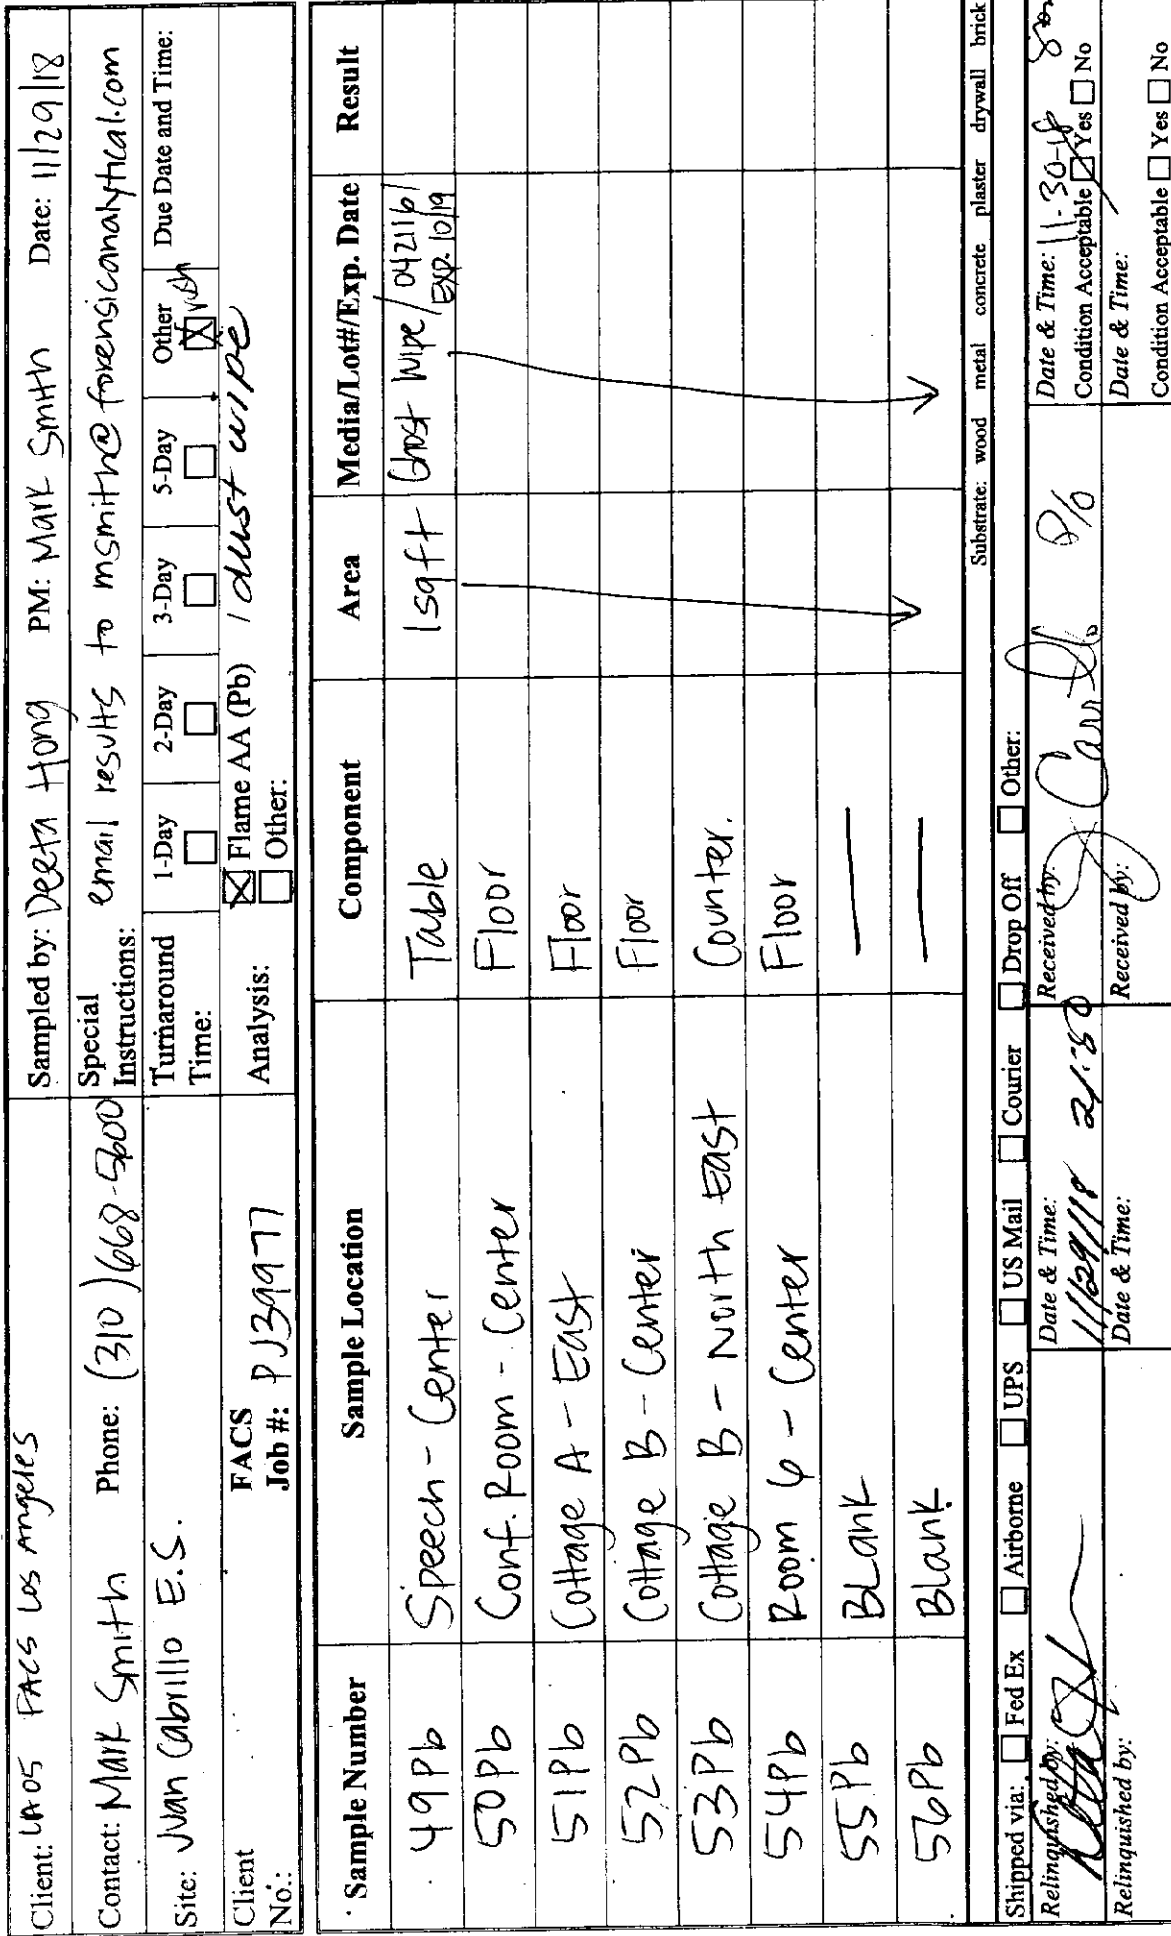 Client: LA05 FACS Los Angeles Sampled by: Deeta Hong PM: Mark Smith Date: 11/29/18
Contact: Mark Smith Phone: (310) 668-5600 Special Instructions: email results to msmith@forensicanalytical.com
Site: Juan Cabrillo E.S. Turnaround Time: 1-Day 2-Day 3-Day 5-Day Other rush Due Date and Time:
Client No.: FACS Job #: PJ39977 Analysis: Flame AA (Pb) / dust wipe
Other:
Sample Number Sample Location Component Area Media/Lot#/Exp. Date Result
49Pb Speech - Center Table 1 sqft Ghost Wipe / 042116 / Exp. 10/19
50Pb Conf. Room - Center Floor
51Pb Cottage A - East Floor
52Pb Cottage B - Center Floor
53Pb Cottage B - North East Counter.
54Pb Room 6 - Center Floor
55Pb Blank —
56Pb Blank —
Substrate: wood metal concrete plaster drywall brick
Shipped via: Fed Ex Airborne UPS US Mail Courier Drop Off Other:
Relinquished by: Date & Time: 11/29/18 Received by: Date & Time: 11-30-18
Condition Acceptable Yes No
Relinquished by: Date & Time: Received by: Date & Time:
Condition Acceptable Yes No